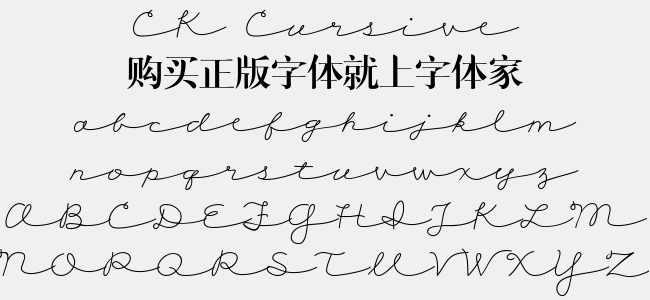 CK Cursive
购买正版字体就上字体家
abcdefghijklm
nopqrstuvwxyz
ABCDEFGHIJKLM
NOPQRSTUVWXYZ